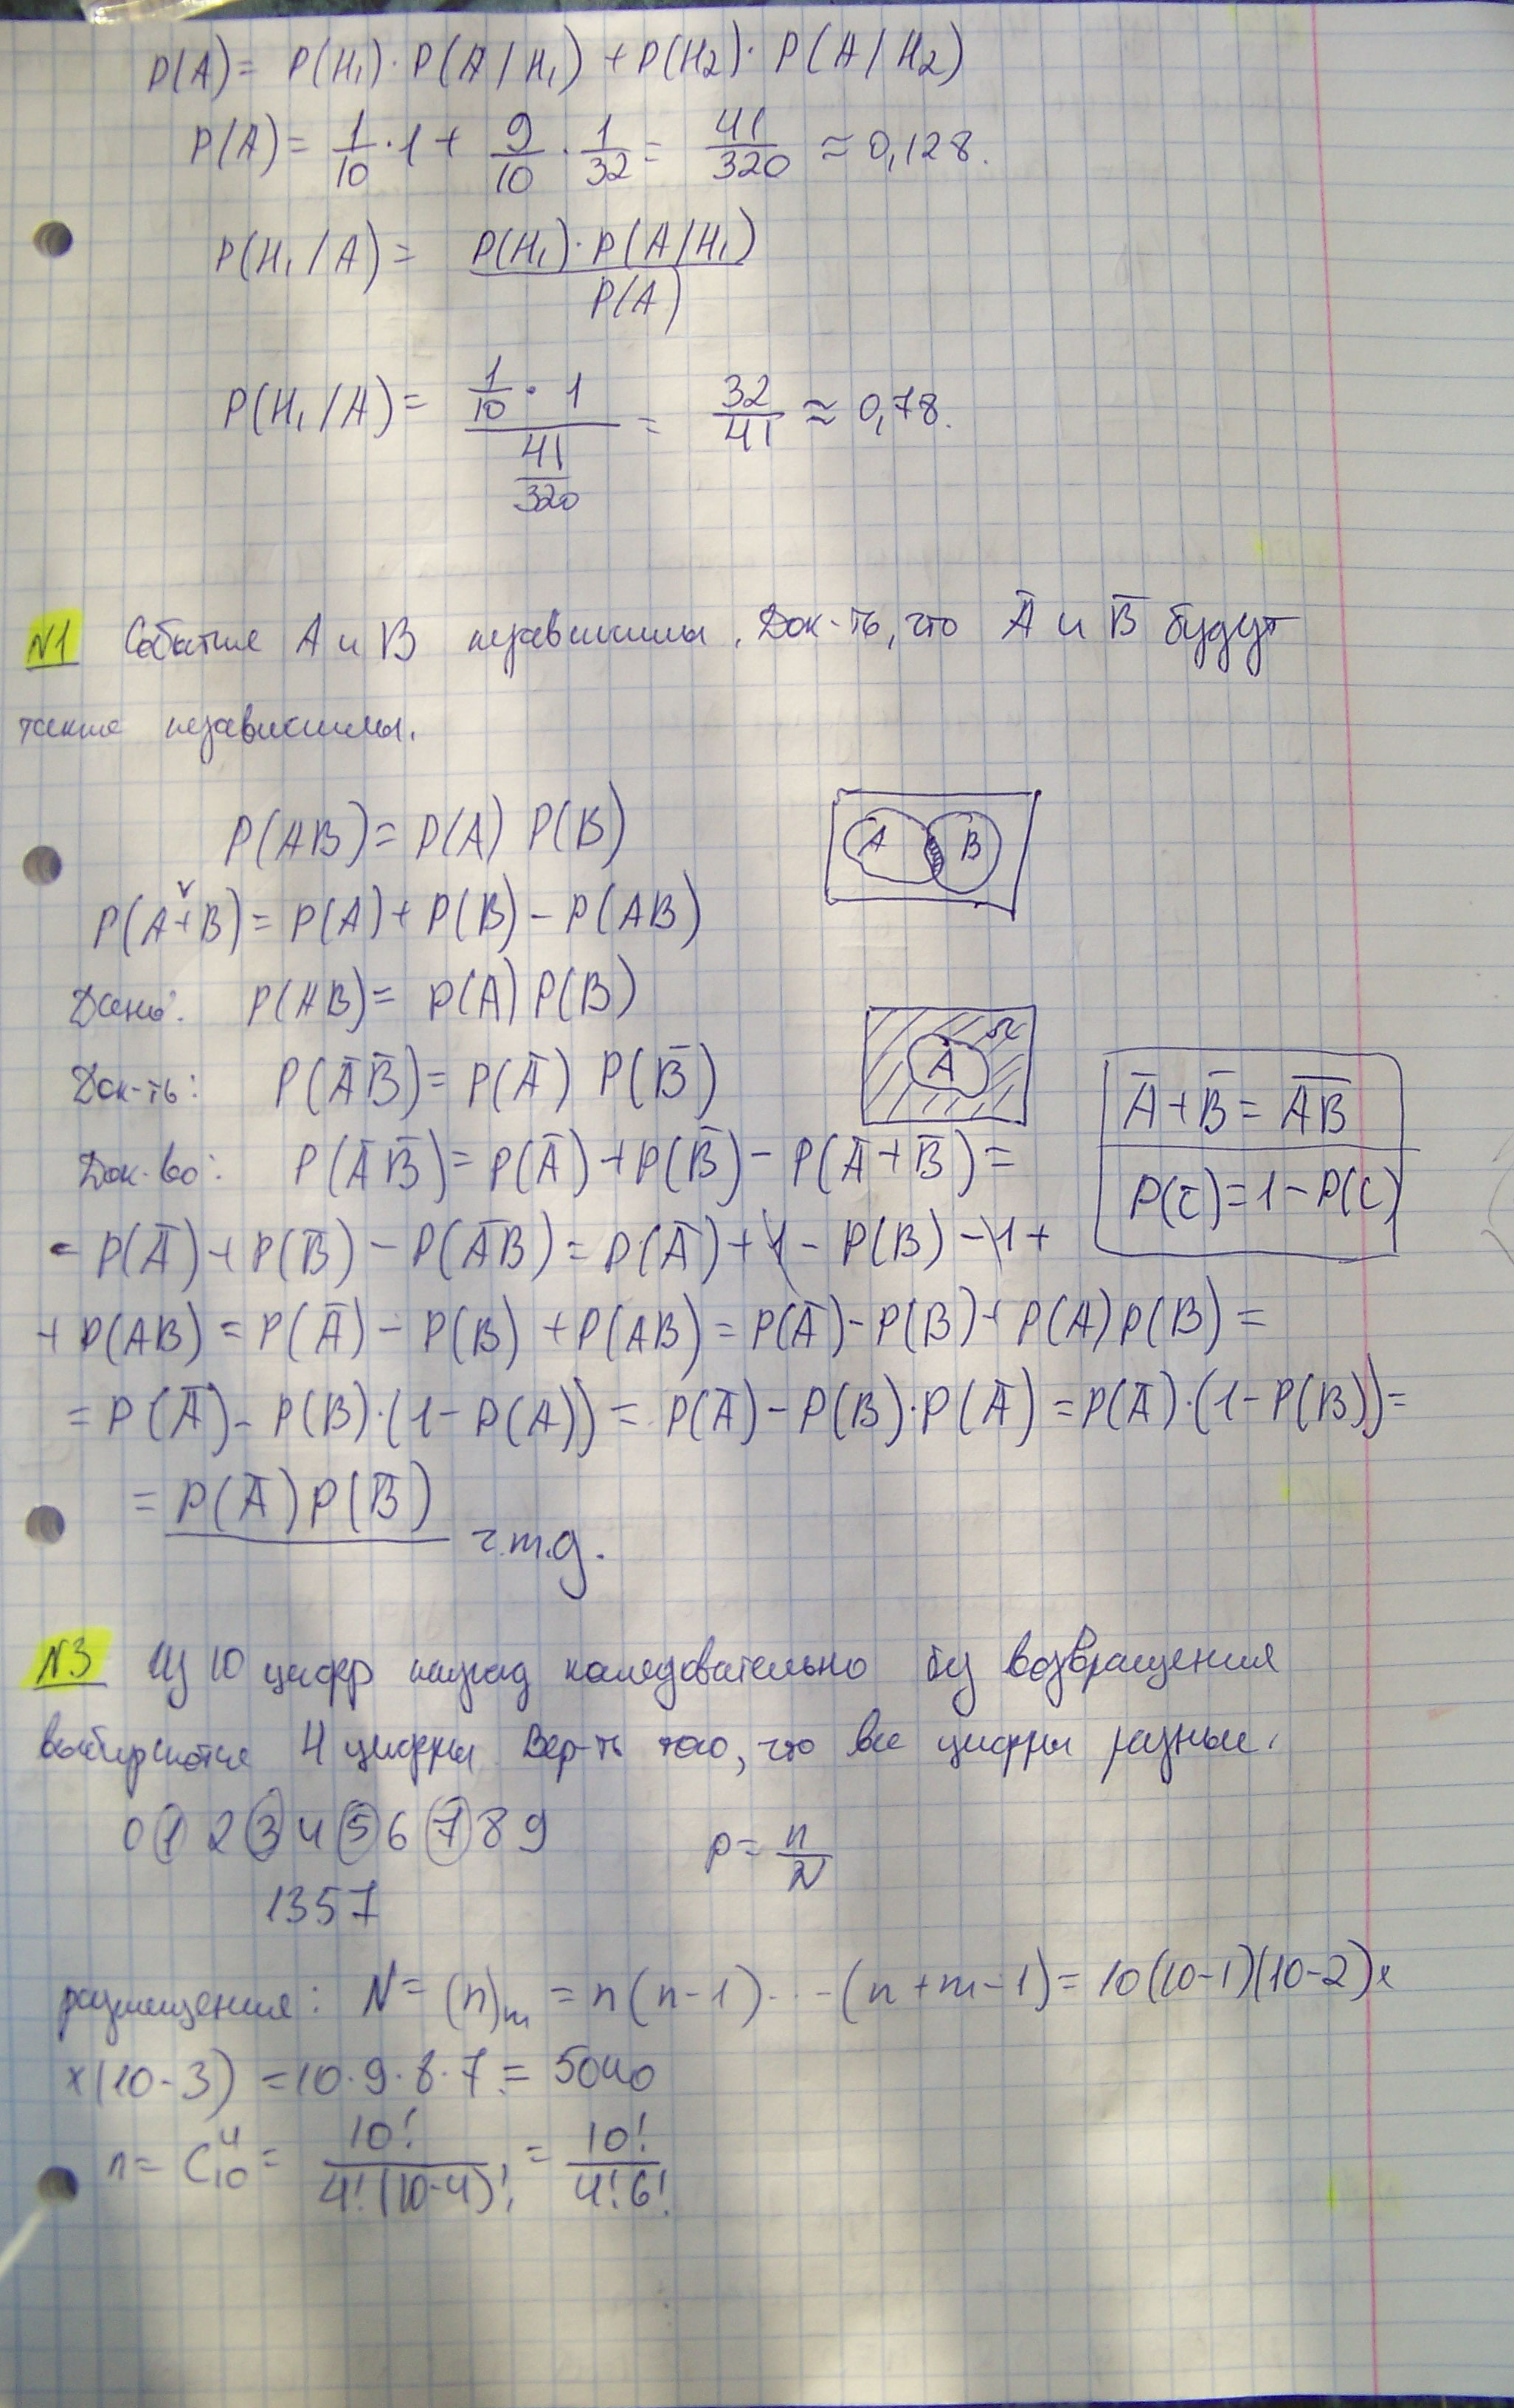 P(A) = P(H₁)·P(A/H₁) + P(H₂)·P(A/H₂)
P(A) = 1/10 · 1 + 9/10 · 1/32 = 41/320 ≈ 0,128.
P(H₁/A) = P(H₁)·P(A/H₁) / P(A)
P(H₁/A) = (1/10 · 1) / (41/320) = 32/41 ≈ 0,78.
N1 События A и B независимы. Док-ть, что Ā и B̄ будут
также независимы.
P(AB) = P(A) P(B)
A B
P(A+B) = P(A) + P(B) - P(AB)
Дано: P(AB) = P(A) P(B)
Док-ть: P(ĀB̄) = P(Ā) P(B̄)
A Ω
Ā + B̄ = \overline{AB}
P(C̄) = 1 - P(C)
Док-во: P(ĀB̄) = P(Ā) + P(B̄) - P(Ā + B̄) =
= P(Ā) + P(B̄) - P(\overline{AB}) = P(Ā) + 1 - P(B) - 1 +
+ P(AB) = P(Ā) - P(B) + P(AB) = P(Ā) - P(B) + P(A) P(B) =
= P(Ā) - P(B)·(1 - P(A)) = P(Ā) - P(B)·P(Ā) = P(Ā)·(1 - P(B)) =
= P(Ā) P(B̄) ч.т.д.
N3 Из 10 цифр наугад последовательно без возвращения
выбираются 4 цифры. Вер-ть того, что все цифры разные.
0 1 2 3 4 5 6 7 8 9
p = n/N
1357
размещения: N = (n)ₘ = n(n-1)...(n+m-1) = 10(10-1)(10-2)×
×(10-3) = 10·9·8·7 = 5040
n = C₁₀⁴ = 10!/4!(10-4)! = 10!/4!6!